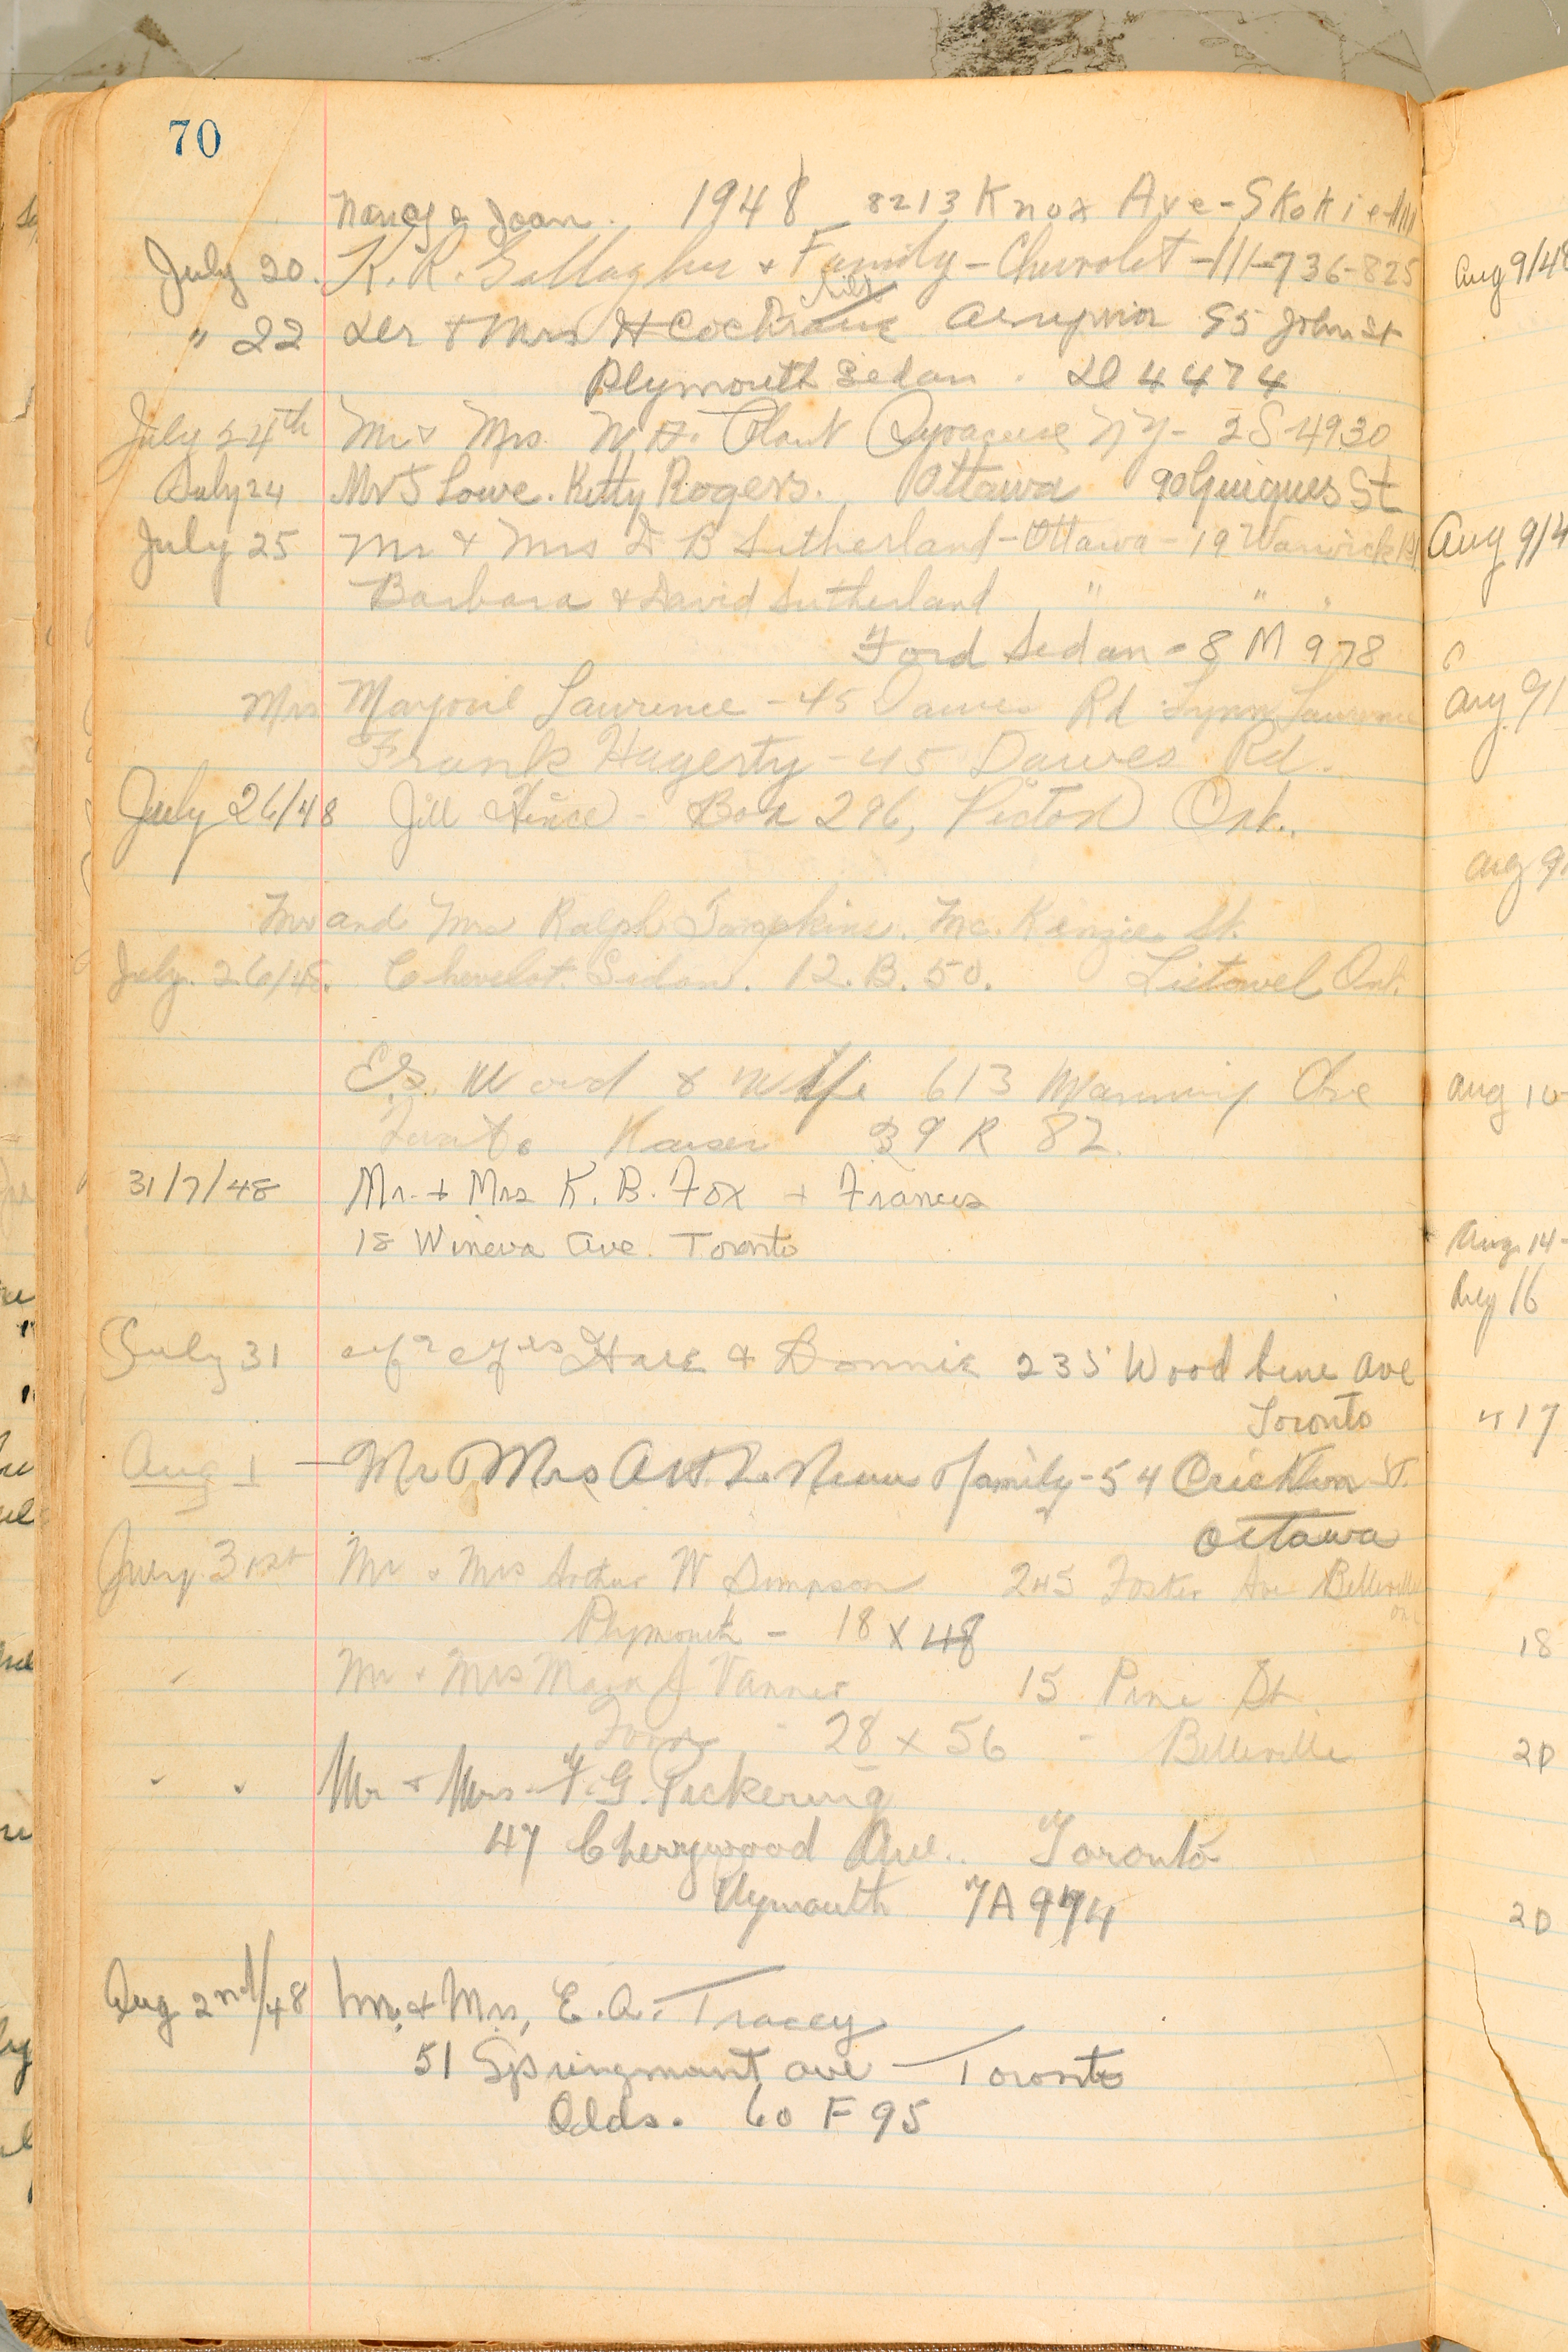 70
Nancy & Joan. 1948 8213 Knox Ave - Skokie - Ill
July 20. K. R. Gallagher & Family - Chevrolet - Ill - 736-825
" 22 Mr & Mrs H Cochrane Arnprior 95 John St
Plymouth Sedan . 4474
July 24th Mr & Mrs. W. H. Plant Syracuse N Y - 2S-4930
July 24 Mrs Lowe. Kitty Rogers. Ottawa 90 Guigues St
July 25 Mr & Mrs D B Sutherland - Ottawa - 19 Warwick
Barbara & David Sutherland " "
Ford Sedan - 8 M 978
Mrs Marjorie Lawrence - 45 Dawes Rd Lynn Lawrence
Frank Hagerty - 45 Dawes Rd.
July 26/48 Jill Hince - Box 296, Picton Ont.
Mr and Mrs Ralph Tompkins. Mc. Kenzie St.
July. 26/48. Chevelot. Sedan. 12. B. 50. Listowel Ont.
Word & Wife 613 Manning Ave
Toronto Kaiser 39 R 82.
31/7/48 Mr. + Mrs K. B. Fox + Frances
18 Wineva Ave. Toronto
July 31 Hare & Donnie 235 Wood bine Ave
Toronto
Aug 1 - Mr & Mrs Art & family - 54 Crichton St.
Ottawa
July 31st Mr & Mrs Arthur W Simpson 245 Foster Ave Belleville
Ont
Plymouth - 18 X 48
" Mr + Mrs J Vanner 15 Pine St.
Ford - 28 x 56 - Belleville
" " Mr + Mrs. F. G. Pickering
47 Cherrywood Ave. Toronto
Plymouth 7A 974
Aug 2nd/48 Mr. & Mrs, E. A. Tracey
51 Springmount ave - Toronto
Olds. 60 F 95
Aug 9/48
Aug 9/4
Aug 9/
Aug 9/
Aug 10-
Aug 14-
Aug 16
" 17
18
20
20